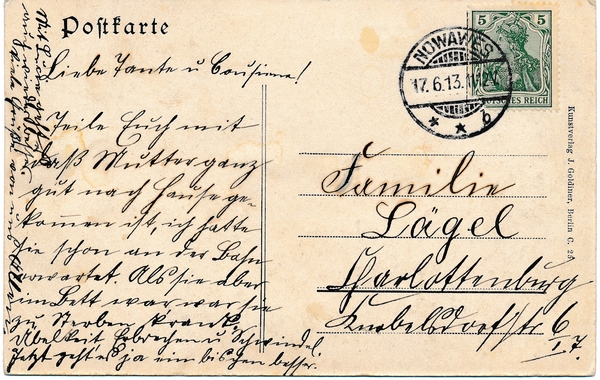 Postkarte
Liebe Tante u Cousine!
Teile Euch mit
daß Mutter ganz
gut nach Hause ge-
kommen ist, ich hatte
sie schon an der Bahn
erwartet. Als sie aber
im Bett war war sie
zu Sterben krank,
Übelkeit Erbrechen u Schwindel,
Jetzt geht es ja ein bischen besser.
NOWAWES
17.6.13.
* * b
5 5
DEUTSCHES REICH
Familie
Lägel
Charlottenburg
Knobelsdorfstr 6
I. 7.
Kunstverlag J. Goldiner, Berlin C. 25